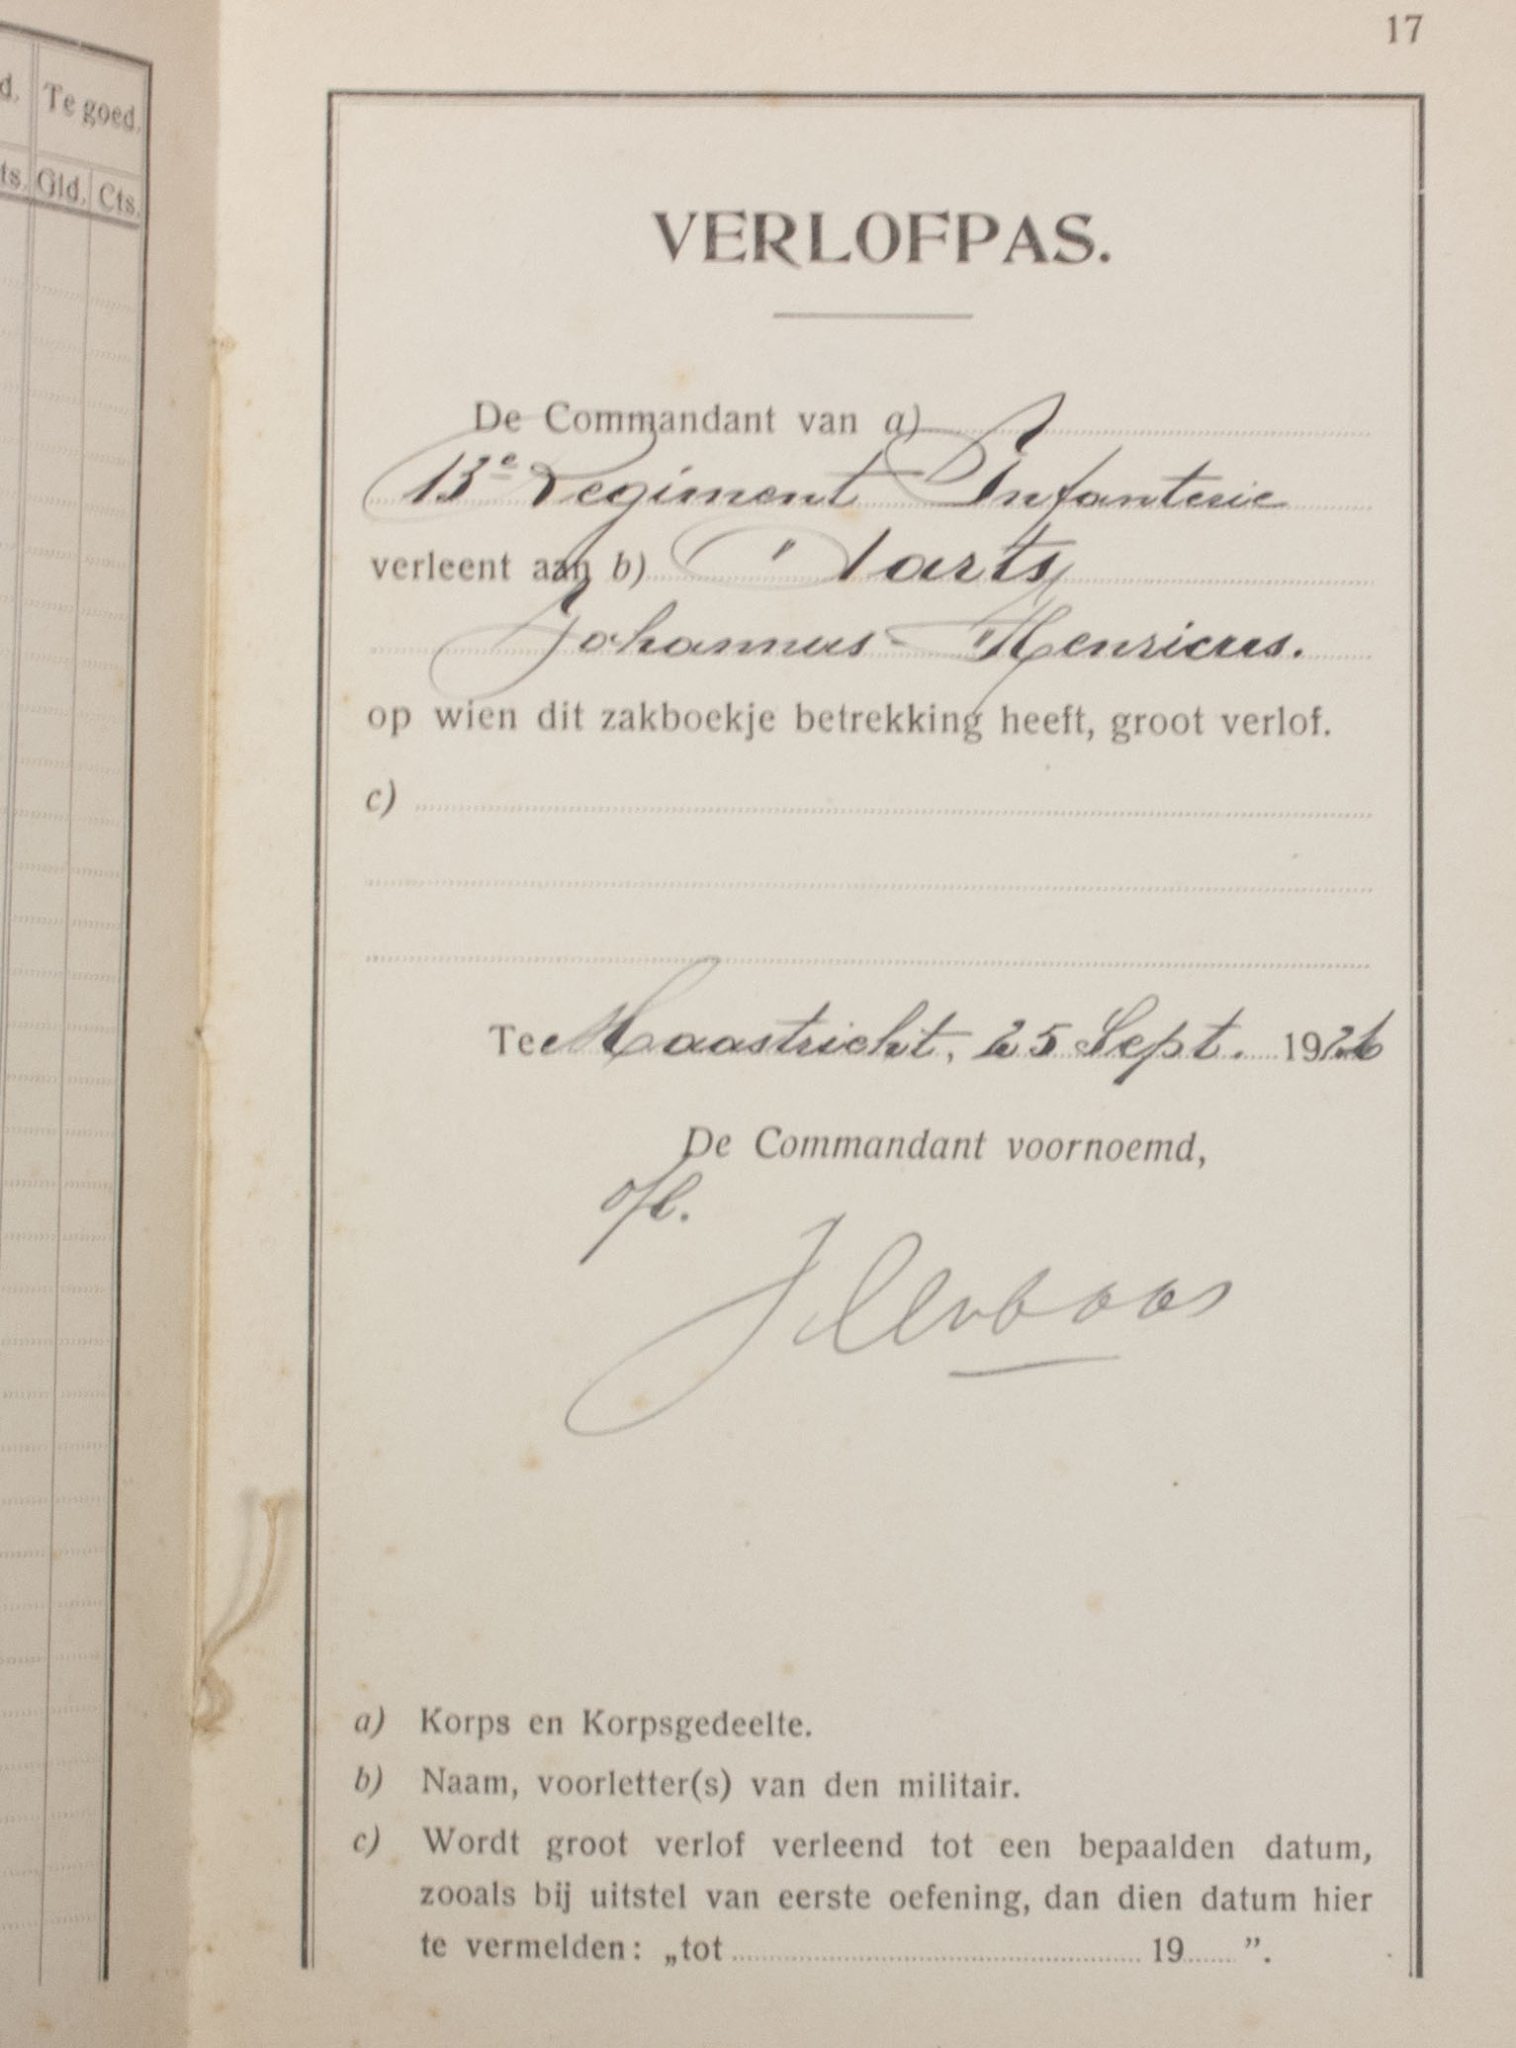 d. Te goed.
ts. Gld. Cts.
17
VERLOFPAS.
De Commandant van a)
13e Regiment Infanterie
verleent aan b) Aarts
Johannus Henricus.
op wien dit zakboekje betrekking heeft, groot verlof.
c)
Te Maastricht, 25 Sept. 1926
De Commandant voornoemd,
o/l.
a) Korps en Korpsgedeelte.
b) Naam, voorletter(s) van den militair.
c) Wordt groot verlof verleend tot een bepaalden datum,
zooals bij uitstel van eerste oefening, dan dien datum hier
te vermelden: „tot 19 ”.